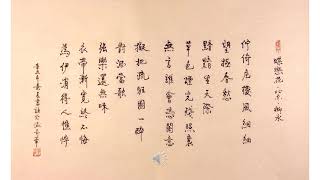 蝶戀花 宋 柳永
佇倚危樓風細細
望極春愁
黯黯生天際
草色煙光殘照裏
無言誰會憑闌意
擬把疏狂圖一醉
對酒當歌
強樂還無味
衣帶漸寬終不悔
為伊消得人憔悴